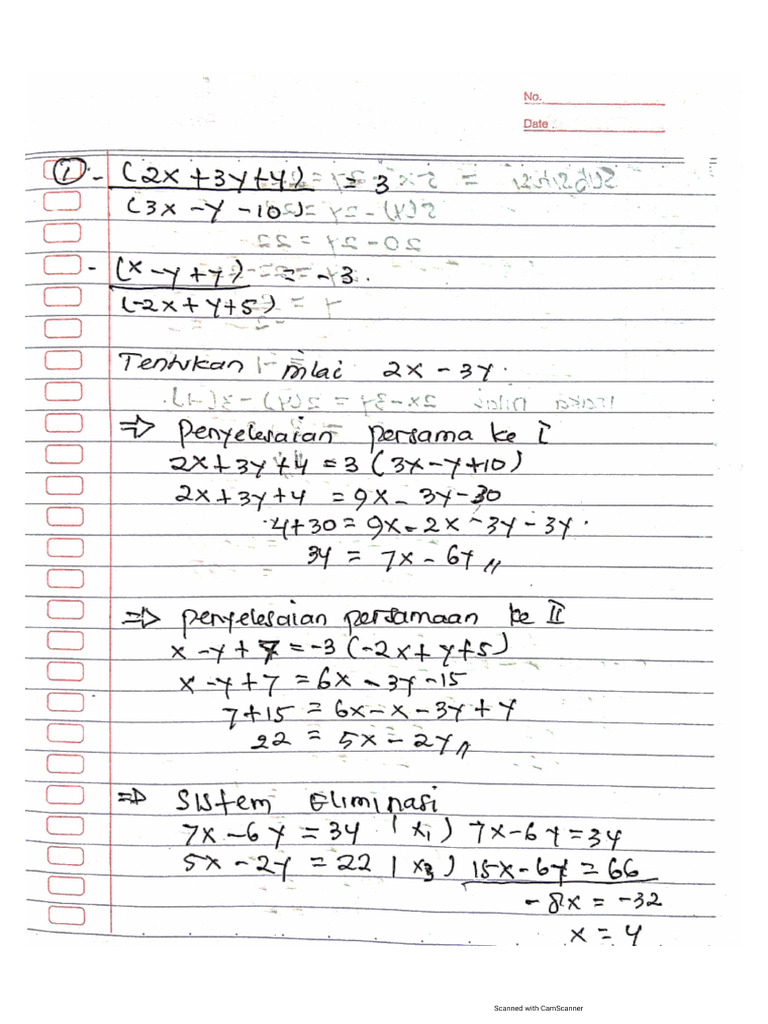 No.
Date
① - (2x + 3y + 4) = 3
(3x - y - 10)
- (x - y + 7) = -3.
(-2x + y + 5)
Tentukan nilai 2x - 3y.
=> Penyelesaian persama ke I
2x + 3y + 4 = 3 (3x - y + 10)
2x + 3y + 4 = 9x - 3y - 30
4 + 30 = 9x - 2x - 3y - 3y.
34 = 7x - 6y //
=> Penyelesaian persamaan ke II
x - y + 7 = -3 (-2x + y + 5)
x - y + 7 = 6x - 3y - 15
7 + 15 = 6x - x - 3y + y
22 = 5x - 2y //
=> Sistem Eliminasi
7x - 6y = 34 | x1 ) 7x - 6y = 34
5x - 2y = 22 | x3 ) 15x - 6y = 66
- 8x = -32
x = 4
Scanned with CamScanner